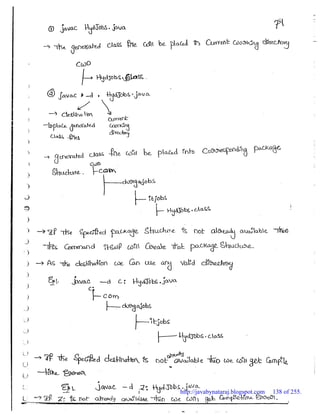 71
① javac HydJobs.java
→ The generated class file will be placed in current working directory
CWD
HydJobs.class
② javac -d . HydJobs.java
→ destination
current
→ to place generated
working
class files
directory
→ generated class file will be placed into corresponding package
structure.
cwd
com
durgajobs
itjobs
HydJobs.class
→ If the specified package structure is not already available then
this command itself will create that package structure.
→ As the destination we can use any valid directory
Ex: javac -d C: HydJobs.java
C:
com
durgajobs
itjobs
HydJobs.class
→ If the specified destination is not already available then we will get compile
time error
Ex: javac -d Z: HydJobs.java
http://javabynataraj.blogspot.com 138 of 255.
→ If Z: is not already available then we will get compilation error.